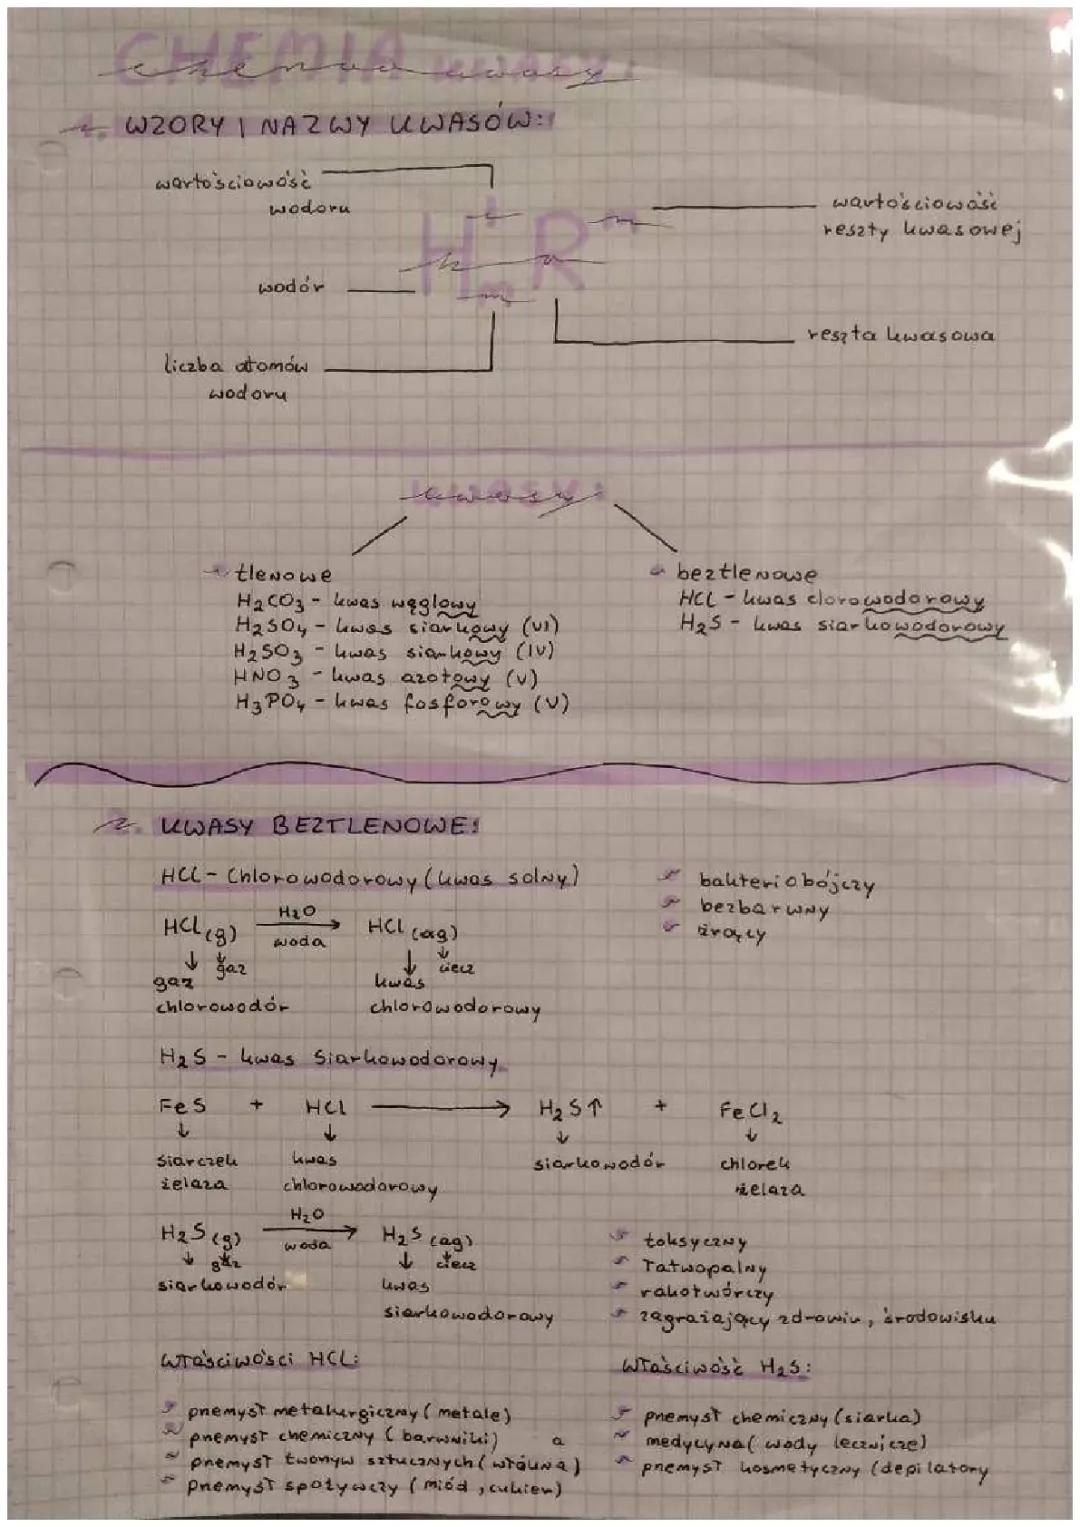 CHEMIA kwasy:
1. WZORY I NAZWY KWASÓW:
wartościowość
wodoru
wartościowość
reszty kwasowej
H I m R n
wodór
reszta kwasowa
liczba atomów
wodoru
kwasy:
tlenowe
H2CO3 - kwas węglowy
H2SO4 - kwas siarkowy (VI)
H2SO3 - kwas siarkowy (IV)
HNO3 - kwas azotowy (V)
H3PO4 - kwas fosforowy (V)
beztlenowe
HCl - kwas clorowodorowy
H2S - kwas siarkowodorowy
2. KWASY BEZTLENOWE:
HCl - Chlorowodorowy (kwas solny)
bakteriobójczy
bezbarwny
żrący
HCl (g) H2O woda → HCl (ag)
↓ ↓ gaz ↓ ↓ ciecz
gaz kwas
chlorowodór chlorowodorowy
H2S - kwas Siarkowodorowy
FeS + HCl → H2S↑ + FeCl2
↓ ↓ ↓ ↓
siarczek kwas siarkowodór chlorek
żelaza chlorowodorowy żelaza
H2S (g) H2O woda → H2S (ag)
↓ gaz ↓ ciecz
siarkowodór kwas
siarkowodorowy
toksyczny
łatwopalny
rakotwórczy
zagrażający zdrowiu, środowisku
właściwości HCL:
przemysł metalurgiczny (metale)
przemysł chemiczny (barwniki) a
przemysł tworzyw sztucznych (włókna)
przemysł spożywczy (miód, cukier)
właściwość H2S:
przemysł chemiczny (siarka)
medycyna (wody lecznicze)
przemysł kosmetyczny (depilatory